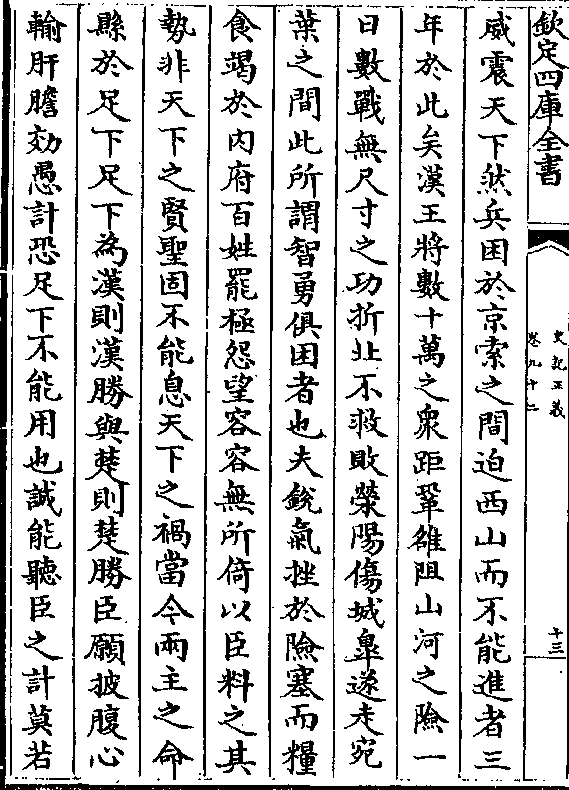 欽定四庫全書
史記正義
卷九十二
十三
威震天下然兵困於京索之間迫西山而不能進者三
年於此矣漢王將數十萬之衆距鞏雒阻山河之險一
日數戰無尺寸之功折北不救敗滎陽傷城臯遂走宛
葉之間此所謂智勇俱困者也夫銳氣挫於險塞而糧
食竭於内府百姓罷極怨望容容無所倚以臣料之其
勢非天下之賢聖固不能息天下之禍當今兩主之命
縣於足下足下為漢則漢勝與楚則楚勝臣願披腹心
輸肝膽効愚計恐足下不能用也誠能聽臣之計莫若